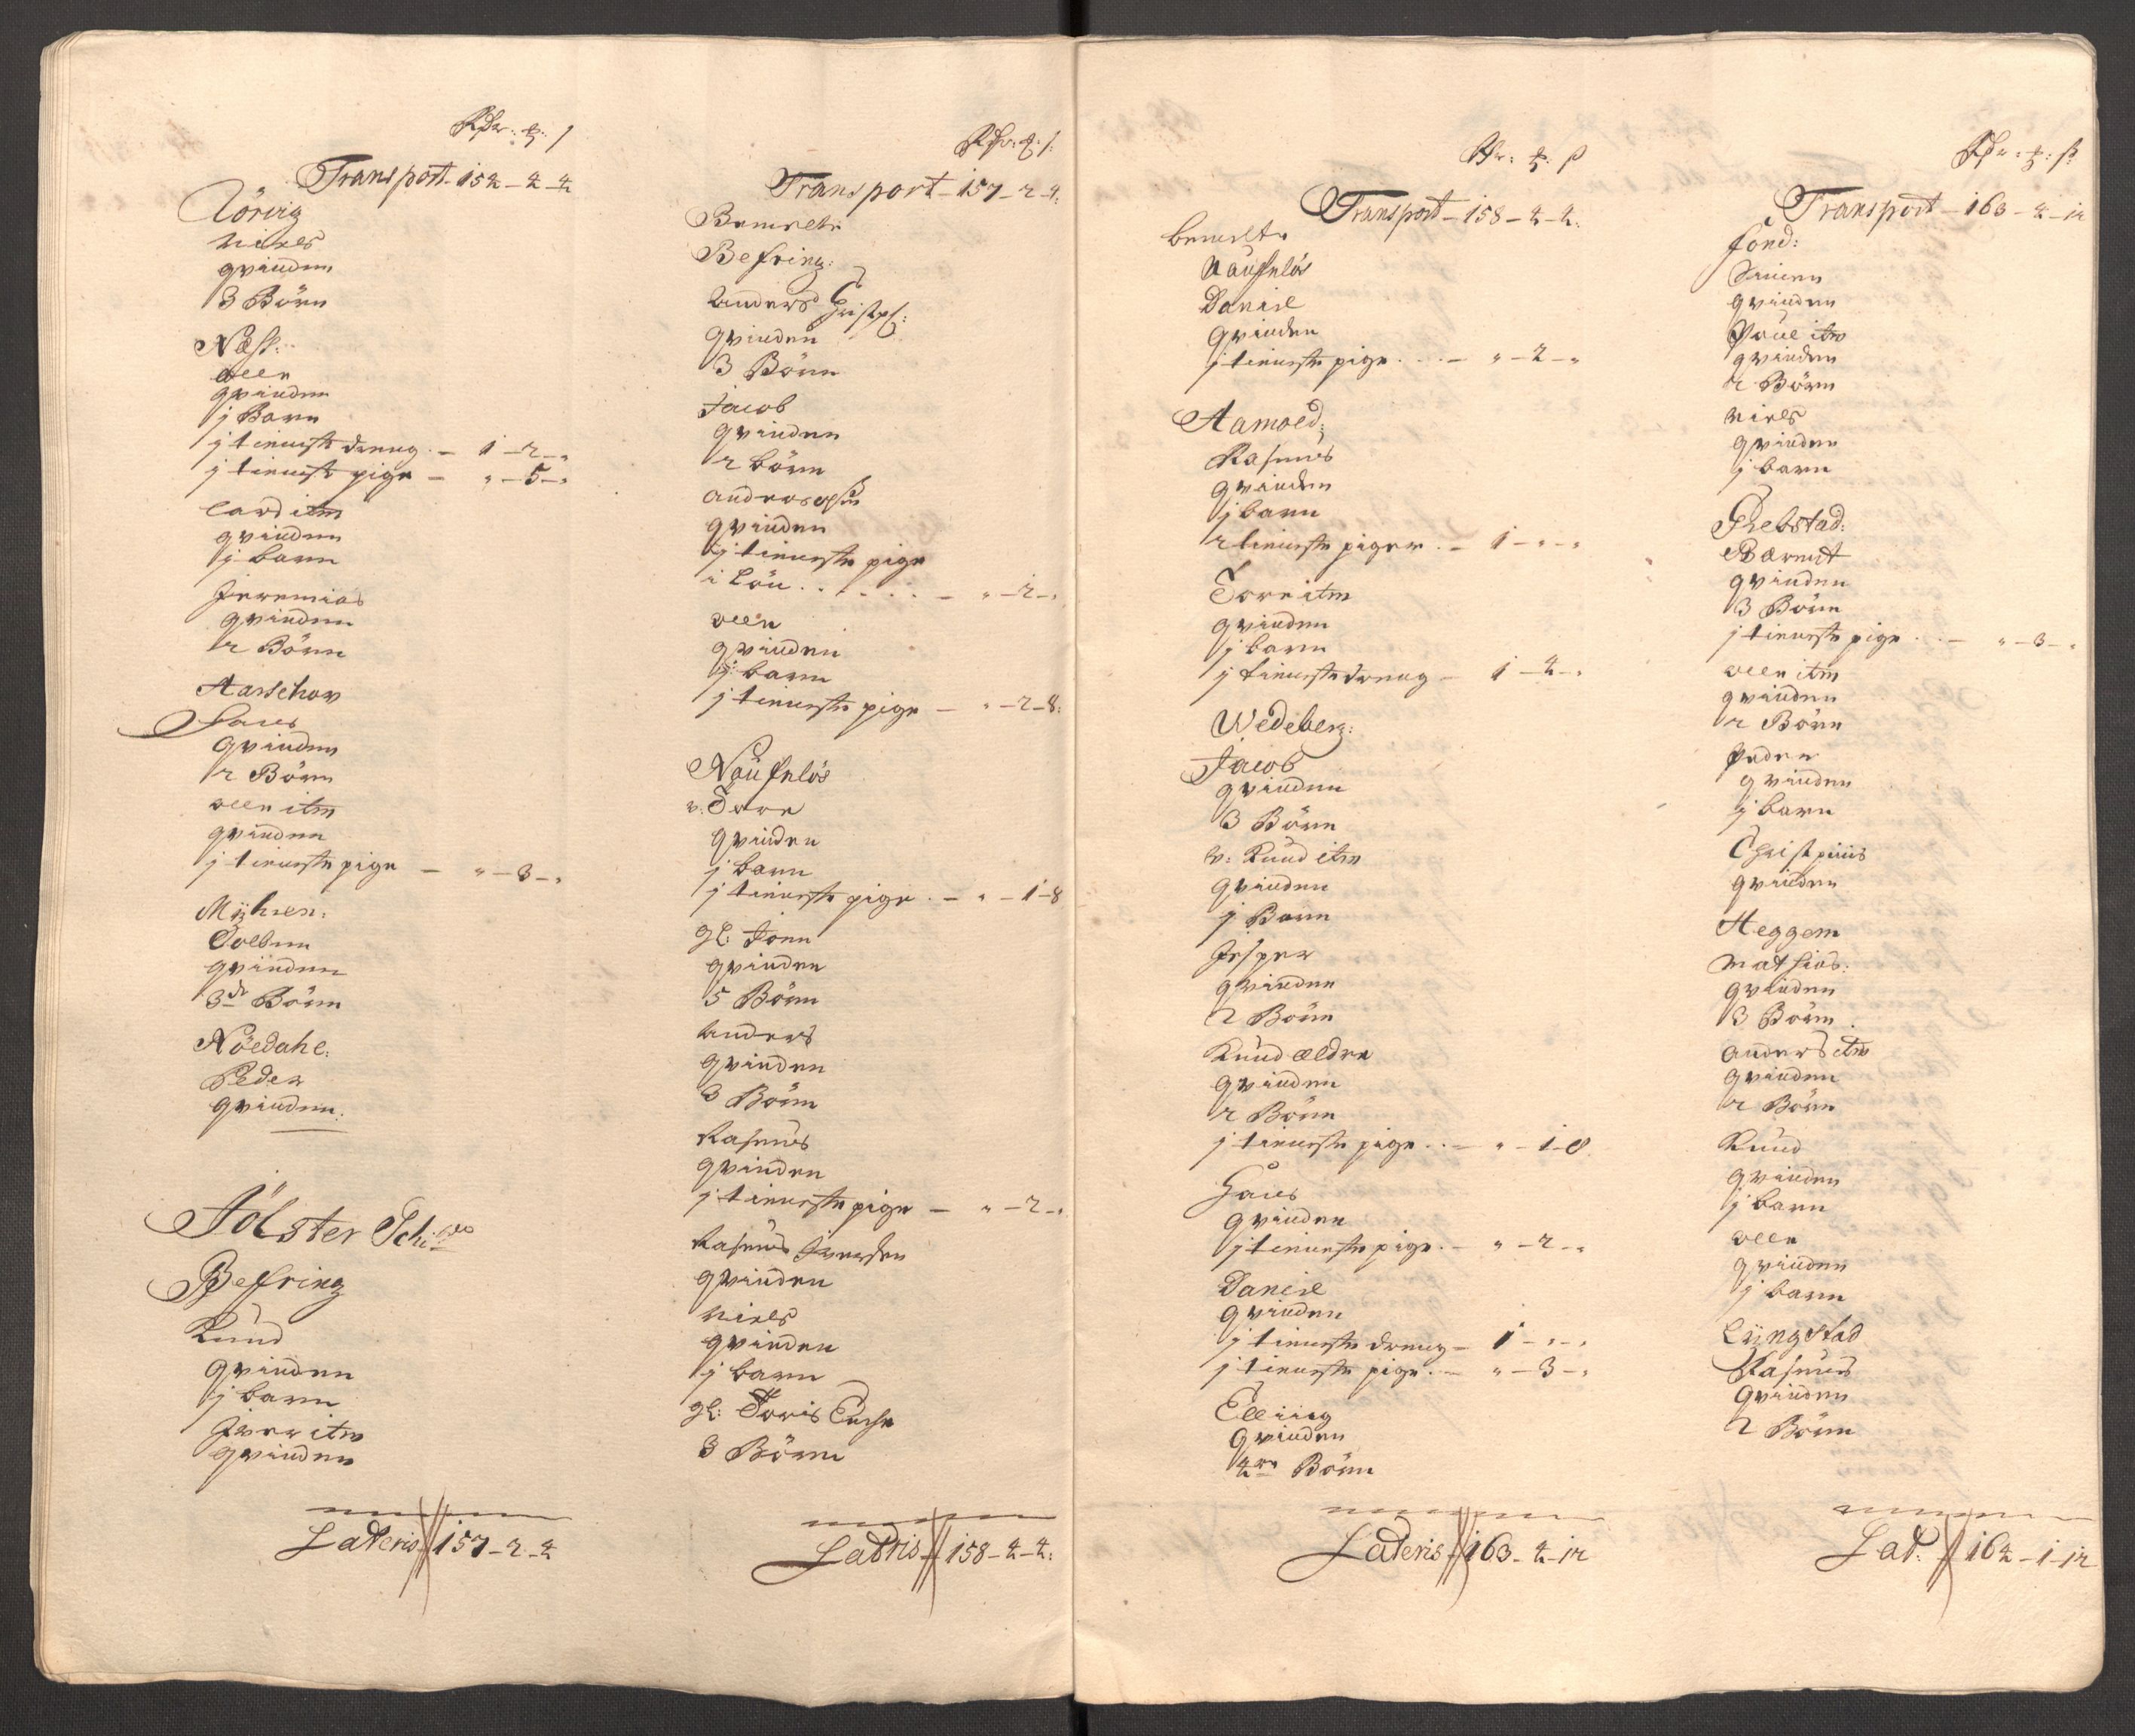 Rdr: ȝ: s
Transport - 154 - 4 - 4
Lörvig
Niels
qvinden
3 Börn
Næss:
olle
qvinden
j Barn
j tieneste dreng - 1 - 2 - "
j tieneste pige - " - 5 - "
Lars itm
qvinden
j barn
Jeremias
qvinden
2 Börn
Aarschow
Hans
qvinden
2 Börn
olle itm
qvinden
j tieneste pige - " - 3 - "
Myhren:
Colben
qvinden
3de Börn
Nöedahl:
Peder
qvinden
Jölster Schibr:
Befring
Knud
qvinden
j barn
Iver itm
qvinden
Lateris 157 - 2 - 4
Rdr: ȝ: s:
Transport - 157 - 2 - 4:
Bemelte
Befring:
Anders Christophs:
qvinden
3 Börn
Jacob
qvinden
2 börn
Anders
qvinden
j tieneste pige
i Lön - " - 2 - "
olle
qvinden
j barn
j tieneste pige - " - 2 - 8:
Nøusnløs
v. Tore
qvinden
j barn
j tieneste pige - " - 1 - 8
gl: Jonn
qvinden
5 Börn
Anders
qvinden
3 Börn
Rasmus
qvinden
j tieneste pige - " - 2 - "
Rasmus Iversen
qvinden
Niels
qvinden
j barn
gl: Joris Enche
3 Börn
Lateris 158 - 4 - 4:
Rdr: ȝ: s
Transport - 158 - 4 - 4:
bemelte
Nøusnløs
Daniel
qvinden
j tieneste pige - " - 2 - "
Aamoed:
Rasmus
qvinden
j barn
2 tieneste piger - 1 - " - "
Tore itm
qvinden
j barn
j tieneste dreng - 1 - 4 - "
Wedeberg:
Jacob
qvinden
3 Börn
v: Knud itm
qvinden
j Barn
Jesper
qvinden
2 Börn
Knud ældre
qvinden
2 Börn
j tieneste pige - " - 1 - 8
Hans
qvinden
j tieneste pige - " - 2 - "
Daniel
qvinden
j tieneste dreng - 1 - " - "
j tieneste pige - " - 3 - "
Elling
qvinden
4re Börn
Lateris 163 - 4 - 12
Rdr: ȝ: s:
Transport - 163 - 4 - 12
fond:
Simen
qvinden
Poul itm
qvinden
2 Börn
Niels
qvinden
j barn
Grebstad:
Bærent
qvinden
3 Börn
j tieneste pige - " - 3 - "
olle itm
qvinden
2 Börn
Peder
qvinden
j barn
Christpher
qvinden
Heggem
Mathias:
qvinden
3 Börn
Anders itm
qvinden
2 Börn
Knud
qvinden
j barn
olle
qvinden
j barn
Lyngstad
Rasmus
qvinden
2 Börn
Lat: 164 - 1 - 12